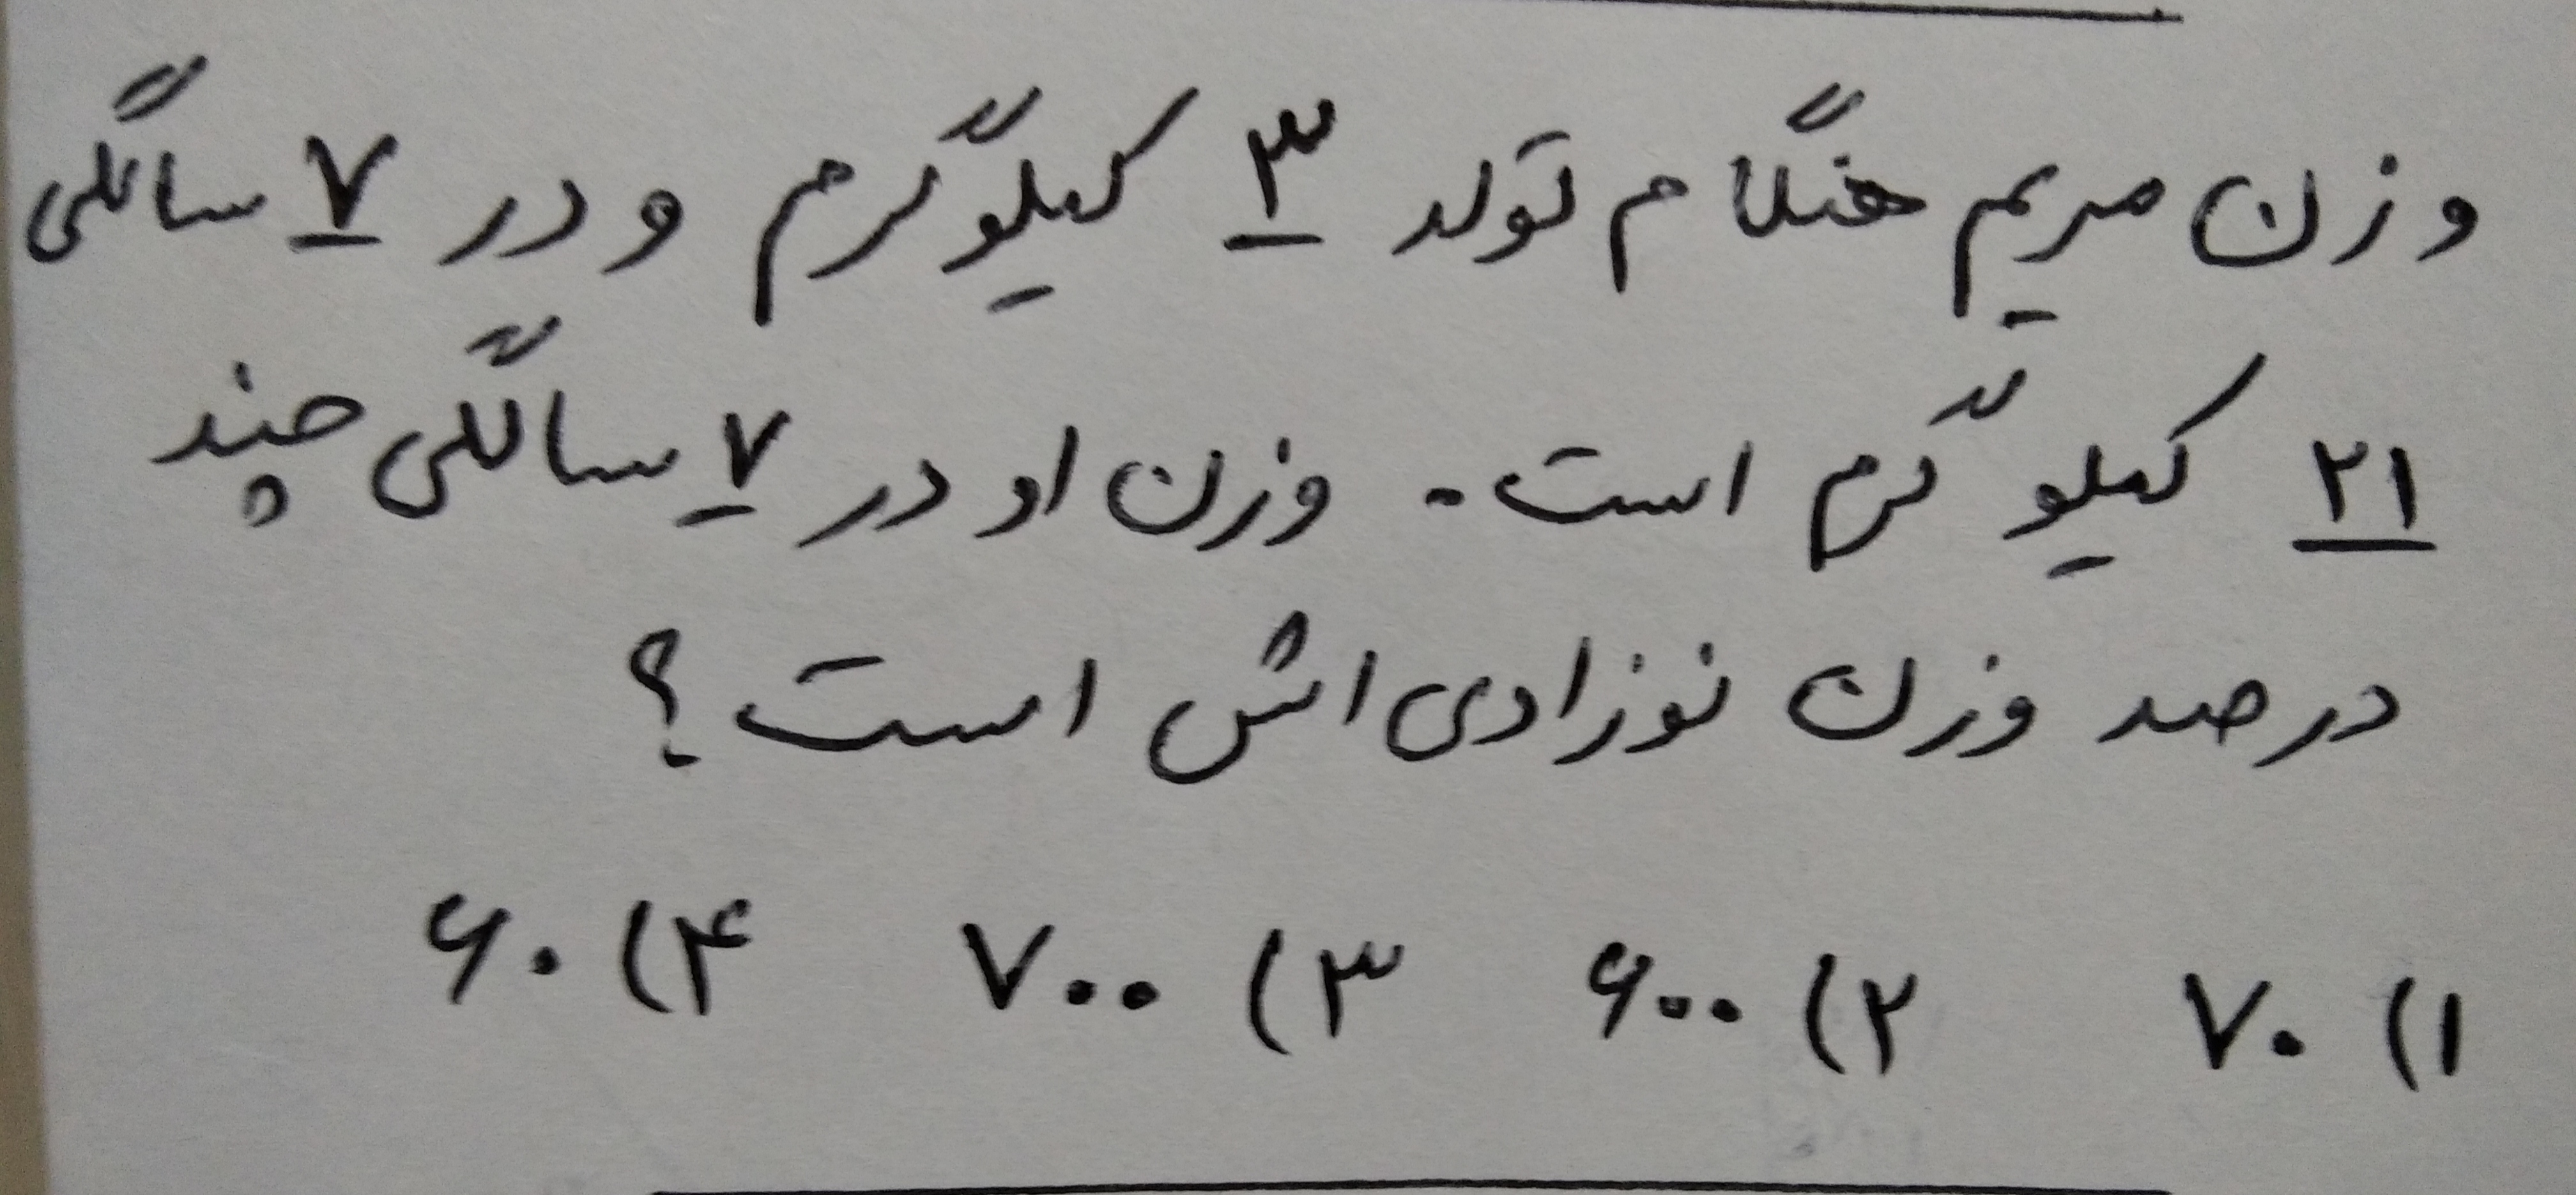 وزن مریم هنگام تولد ۳ کیلوگرم و در ۷ سالگی
۲۱ کیلوگرم است. وزن او در ۷ سالگی چند
درصد وزن نوزادی اش است؟
۱) ۷۰ ۲) ۶۰۰ ۳) ۷۰۰ ۴) ۶۰